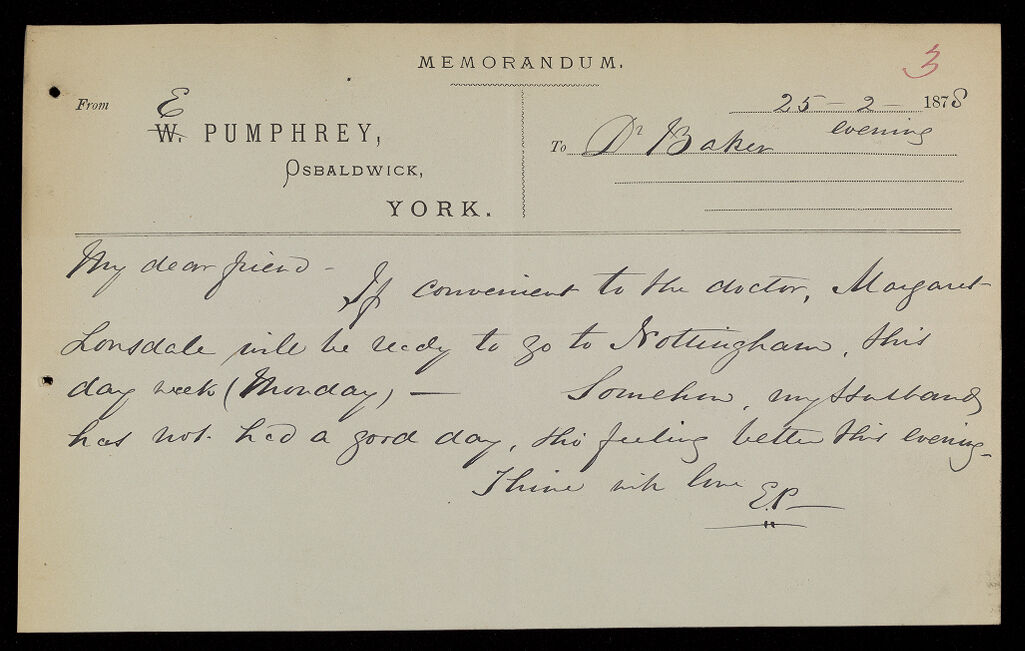 MEMORANDUM.
3
From
E
W. PUMPHREY,
OSBALDWICK,
YORK.
25 - 2 - 1878
evening
To Dr Baker
My dear friend -
If convenient to the doctor, Margaret
Lonsdale will be ready to go to Nottingham, this
day week (Monday) —
Somehow, my Husband
has not had a good day, tho' feeling better this evening -
Thine with love E.P —